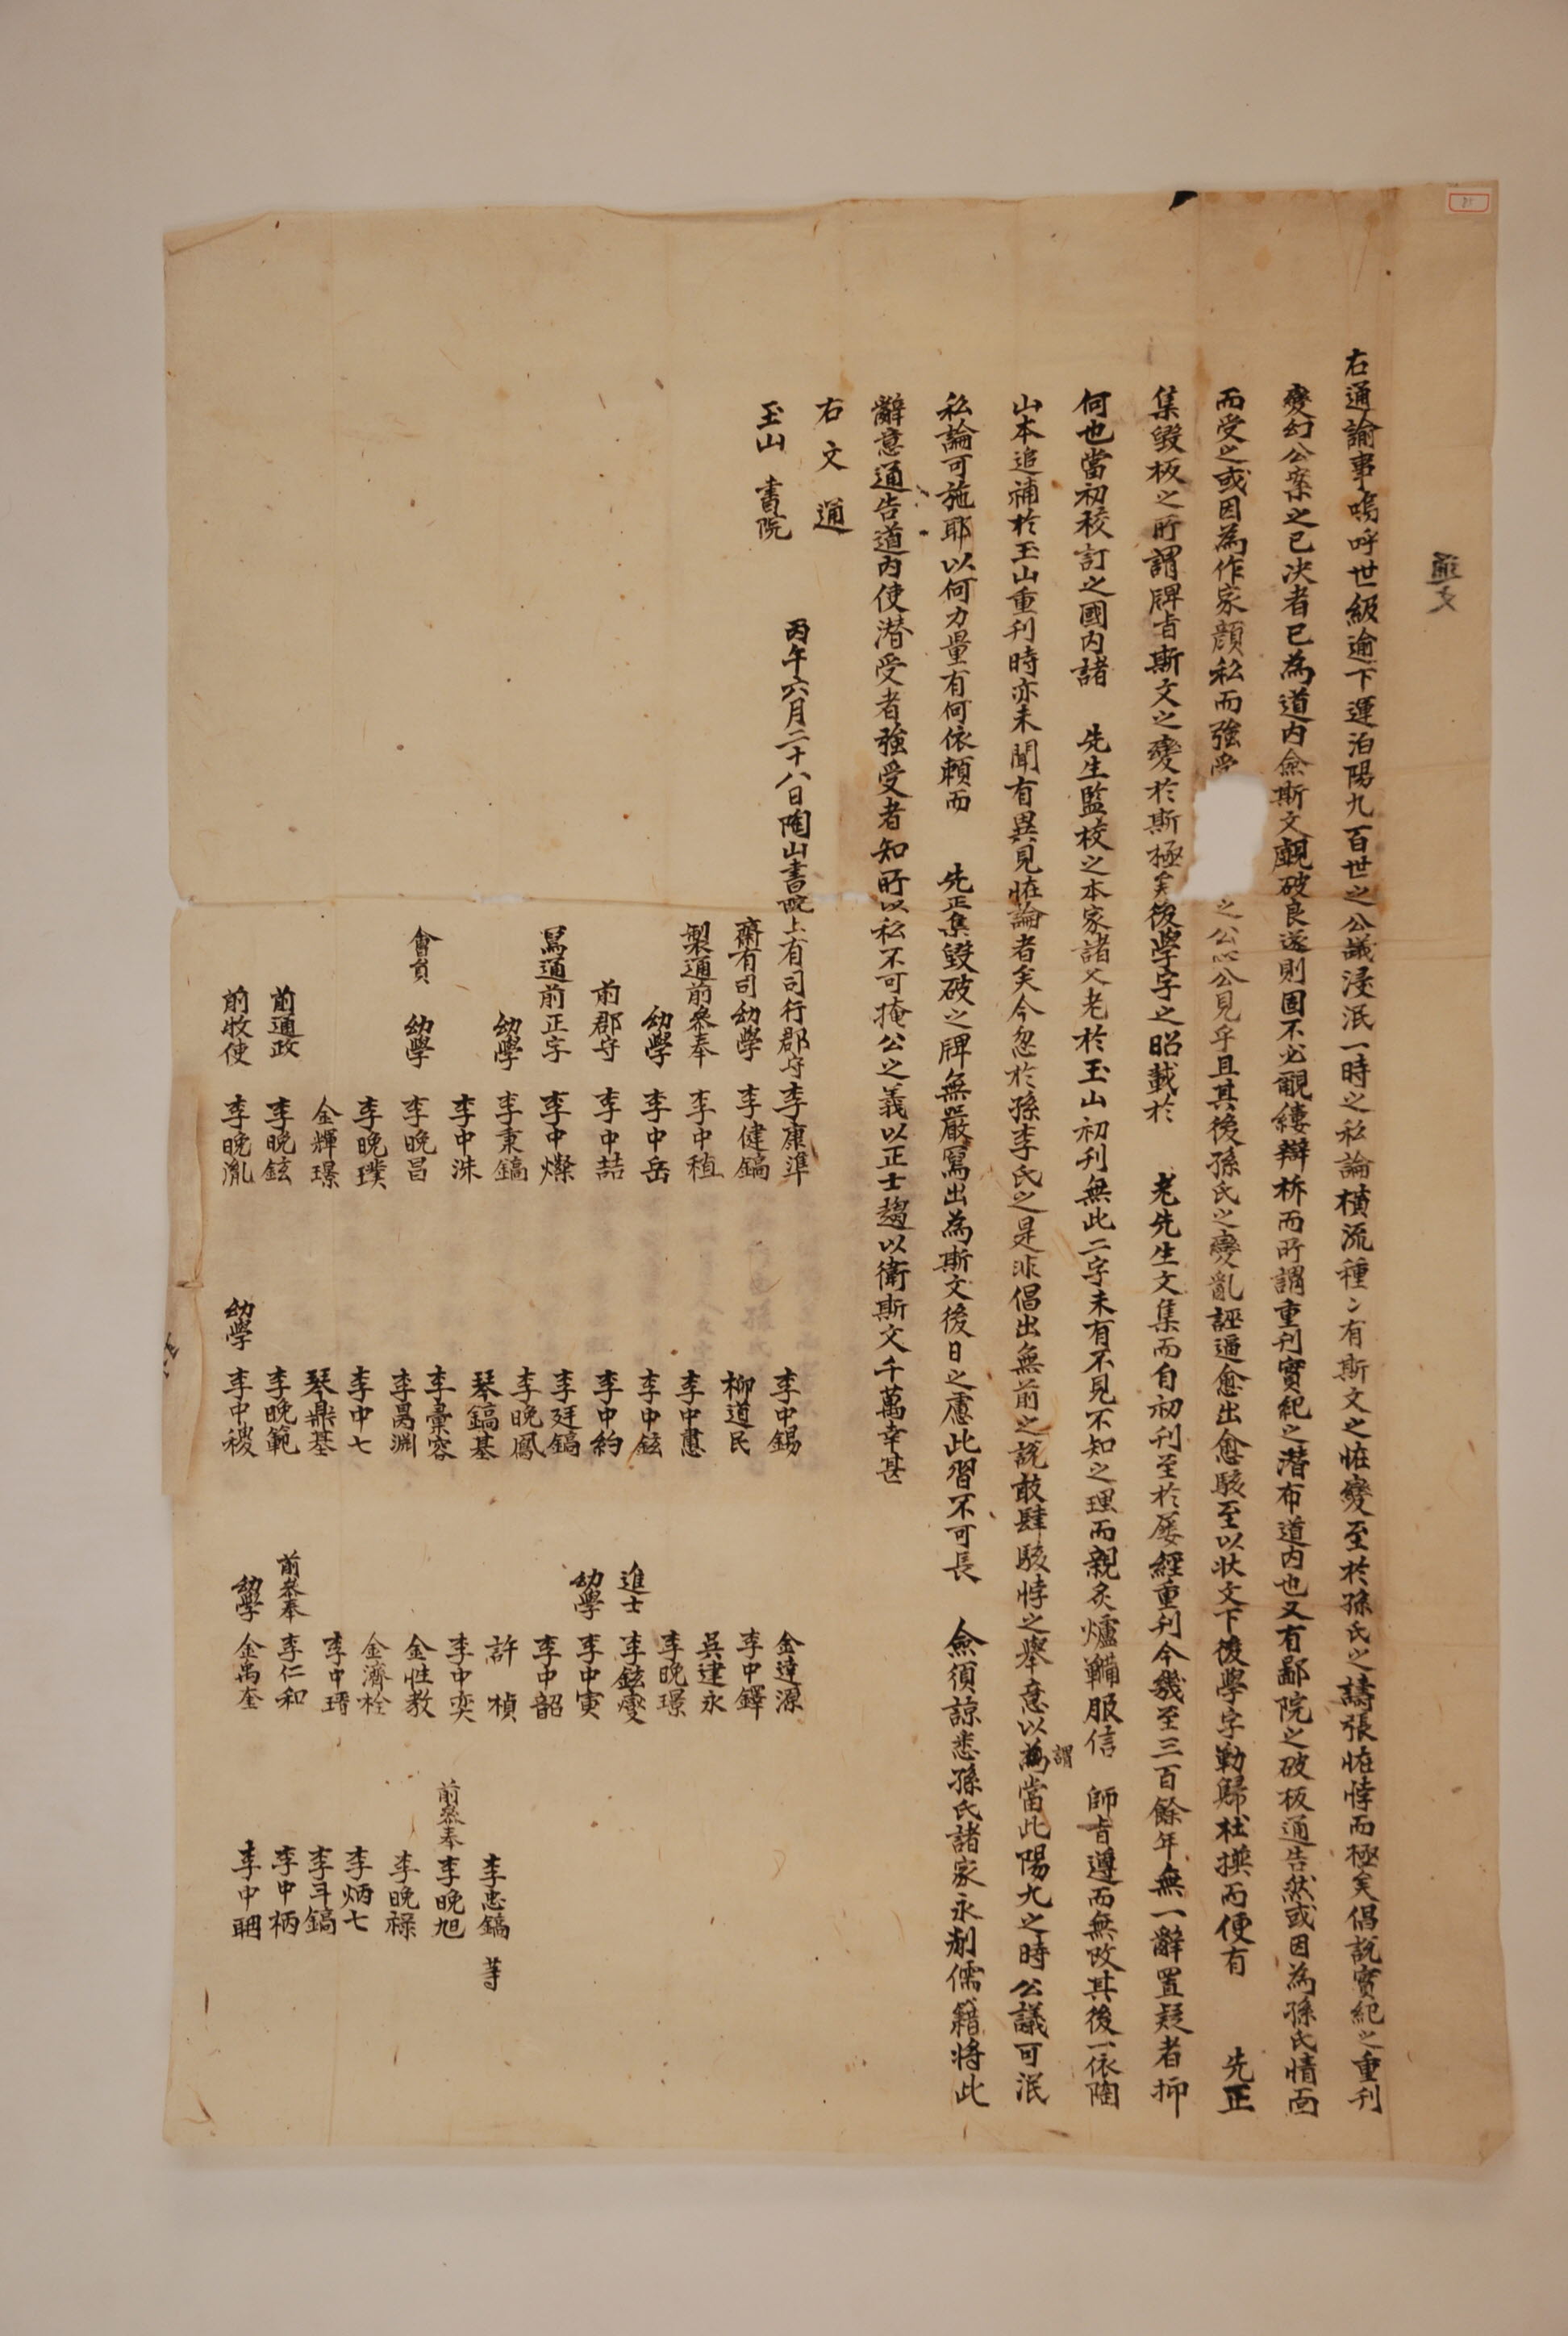 通文
右通諭事嗚呼世級逾下運泊陽九百世之公議浸泯一時之私論橫流種〻有斯文之恠變至於孫氏之譸張恠悖而極矣倡說實紀之重刊
變幻公案之已決者已為道內僉斯文覰破良遂則固不必覼縷辯柝而所謂重刊實紀之潛布道內也又有鄙院之破板通告然或因為孫氏情面
而受之或因為作家顔私而強受之公心公見乎且其後孫氏之變亂誣逼愈出愈駭至以狀文下後學字勒歸杜撰而便有 先正
集毁板之所謂牌旨斯文之變於斯極矣後學字之昭載於 老先生文集而自初刊至於屡經重刊今幾至三百餘年無一辭置疑者抑
何也當初校訂之國內諸 先生監校之本家諸父老於玉山初刊無此二字未有不見不知之理而親炙爐鞴服信 師旨遵而無改其後一依陶
山本追補於玉山重刊時亦未聞有異見恠論者矣今忽於孫李氏之是非倡出無前之說敢肆駭悖之擧意以為謂當此陽九之時公議可泯
私論可施耶以何力量有何依賴而 先正集毁破之牌無嚴寫出為斯文後日之慮此習不可長 僉須諒悉孫氏諸家永削儒籍將此
辭意通告道內使潛受者強受者知所以私不可掩公之義以正士趨以衛斯文千萬幸甚
右文通
玉山書院
丙午六月二十八日陶山書院上有司行郡守李康準
齋有司幼學李健鎬
製通前參奉李中稙
幼學李中岳
前郡守李中喆
寫通前正字李中燦
幼學李秉鎬
李中洙
會員幼學李晩昌
李晩璞
金輝璟
前通政李晩鉉
前牧使李晩胤
李中錫
柳道民
李中悳
李中鉉
李中約
李廷鎬
李晩鳳
琴鎬基
李彙容
李昺淵
李中七
琴鼎基
李晩範
幼學李中稷
金達源
李中鐸
吳建永
李晩璟
進士李鉉燮
幼學李中寅
李中韶
許楨
李中奕
金性敎
金濟栓
李中瑨
前參奉李仁和
幼學金禹奎
李忠鎬等
前參奉李晩旭
李晩祿
李炳七
李斗鎬
李中柄
李中